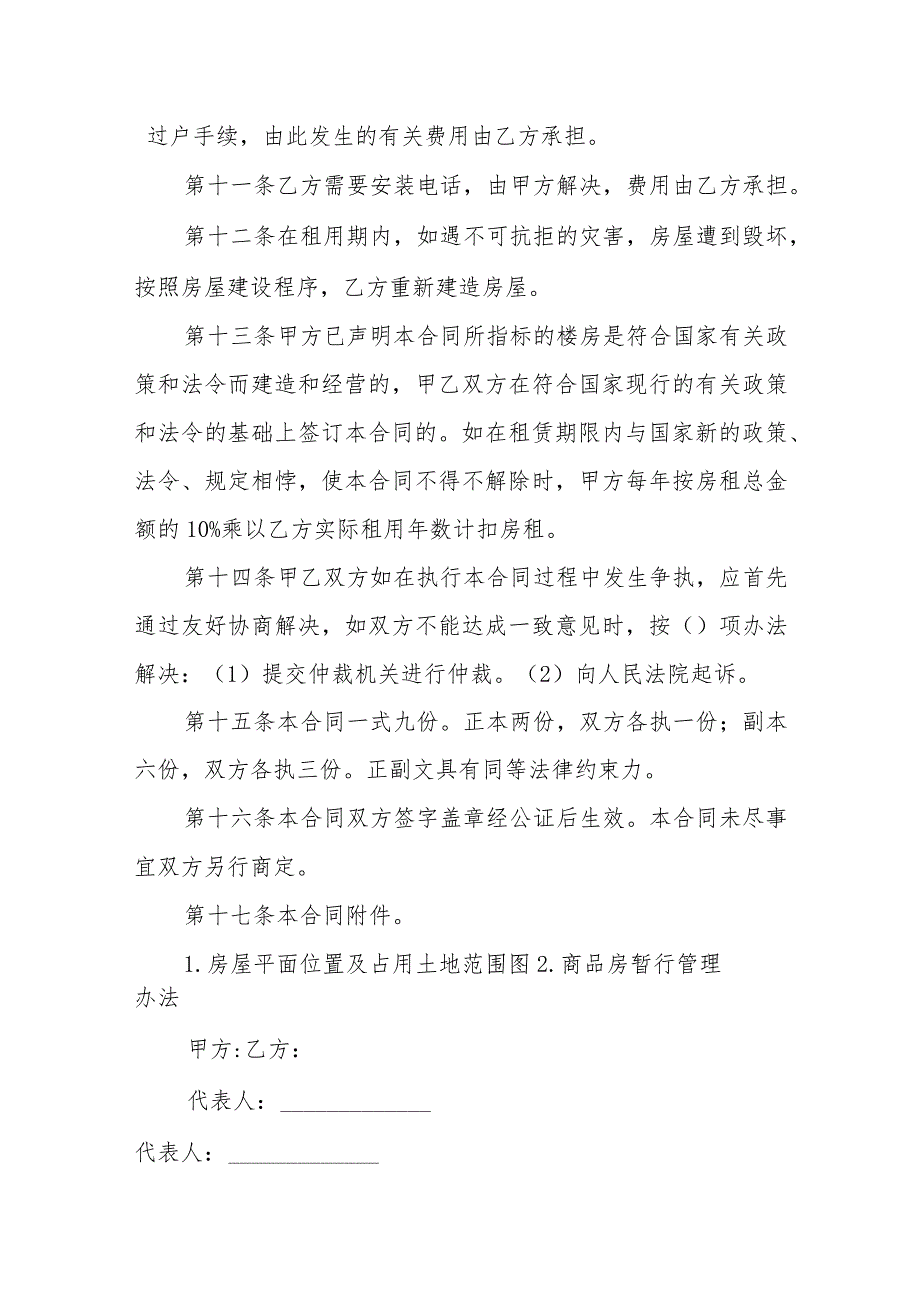 过户手续，由此发生的有关费用由乙方承担。
第十一条乙方需要安装电话，由甲方解决，费用由乙方承担。
第十二条在租用期内，如遇不可抗拒的灾害，房屋遭到毁坏，
按照房屋建设程序，乙方重新建造房屋。
第十三条甲方已声明本合同所指标的楼房是符合国家有关政
策和法令而建造和经营的，甲乙双方在符合国家现行的有关政策
和法令的基础上签订本合同的。如在租赁期限内与国家新的政策、
法令、规定相悖，使本合同不得不解除时，甲方每年按房租总金
额的10%乘以乙方实际租用年数计扣房租。
第十四条甲乙双方如在执行本合同过程中发生争执，应首先
通过友好协商解决，如双方不能达成一致意见时，按（）项办法
解决：（1）提交仲裁机关进行仲裁。（2）向人民法院起诉。
第十五条本合同一式九份。正本两份，双方各执一份；副本
六份，双方各执三份。正副文具有同等法律约束力。
第十六条本合同双方签字盖章经公证后生效。本合同未尽事
宜双方另行商定。
第十七条本合同附件。
1.房屋平面位置及占用土地范围图2.商品房暂行管理
办法
甲方:乙方：
代表人：_____________
代表人：_____________